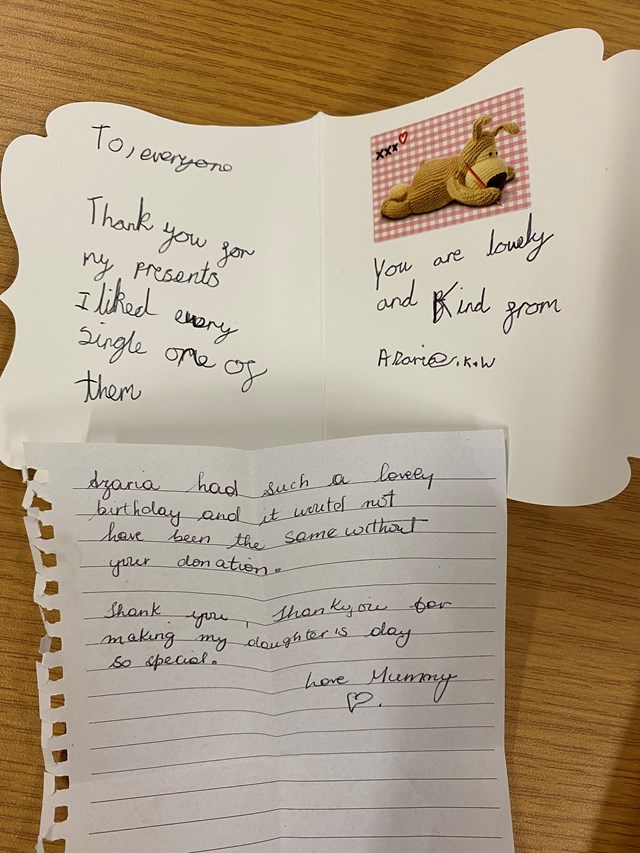 To, everyone
Thank you for
my presents
I liked every
single one of
them
xxx
You are lovely
and Kind from
Azaria had such a lovely
birthday and it would not
have been the same without
your donation.
Thank you, Thankyou for
making my daughter's day
so special.
Love Mummy